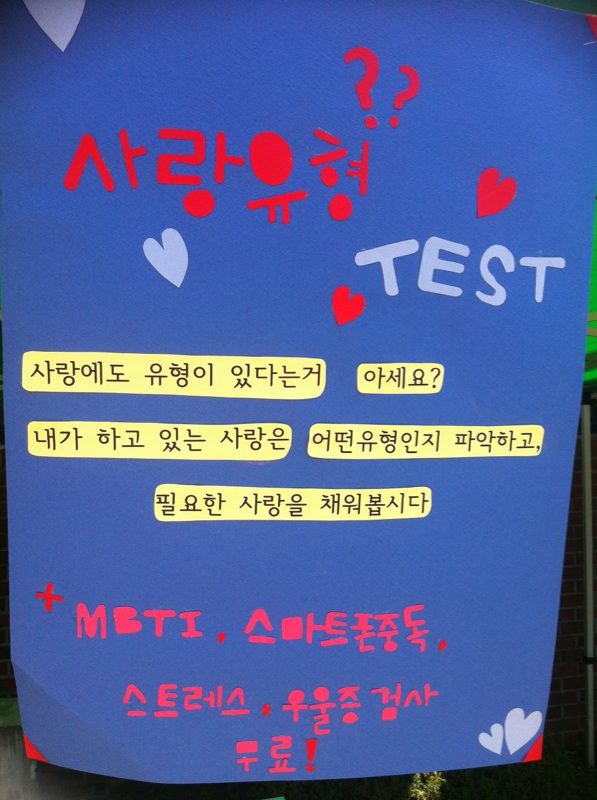 ??
사랑유형
TEST
사랑에도 유형이 있다는거 아세요?
내가 하고 있는 사랑은 어떤유형인지 파악하고,
필요한 사랑을 채워봅시다
+ MBTI, 스마트폰중독,
스트레스, 우울증검사
무료!